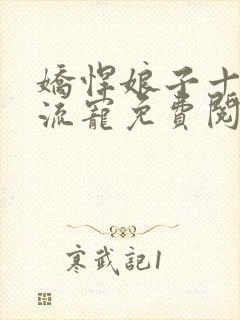 嬌悍娘子十
流寵免費閱
寒武記1